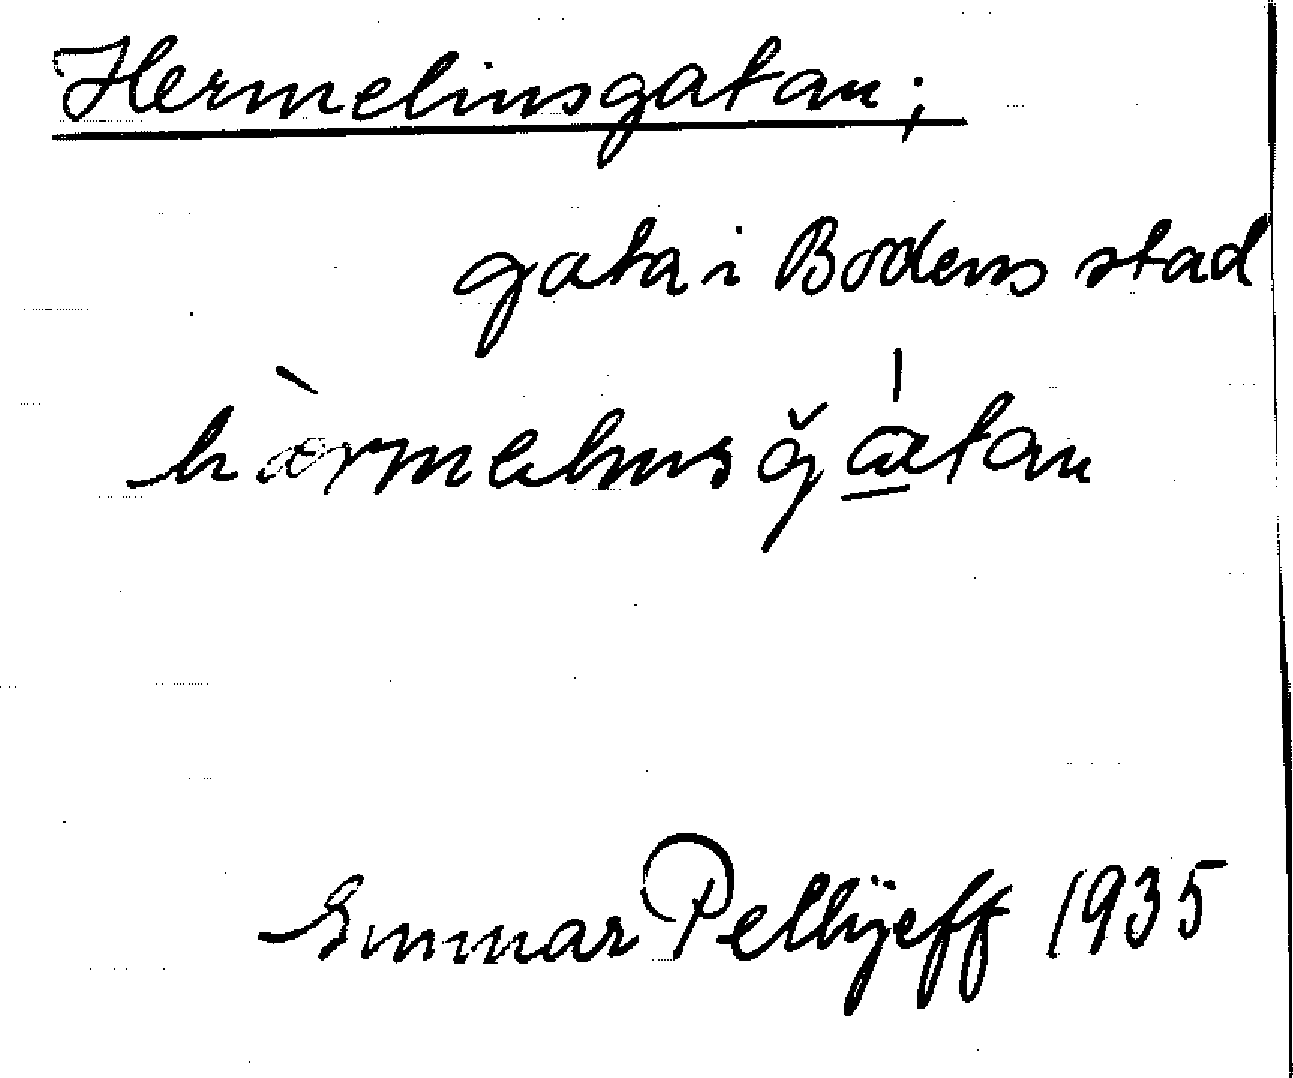 Hermelinsgatan;
gata i Bodens stad
hærmelinsgatan
Gunnar Pellijeff 1935